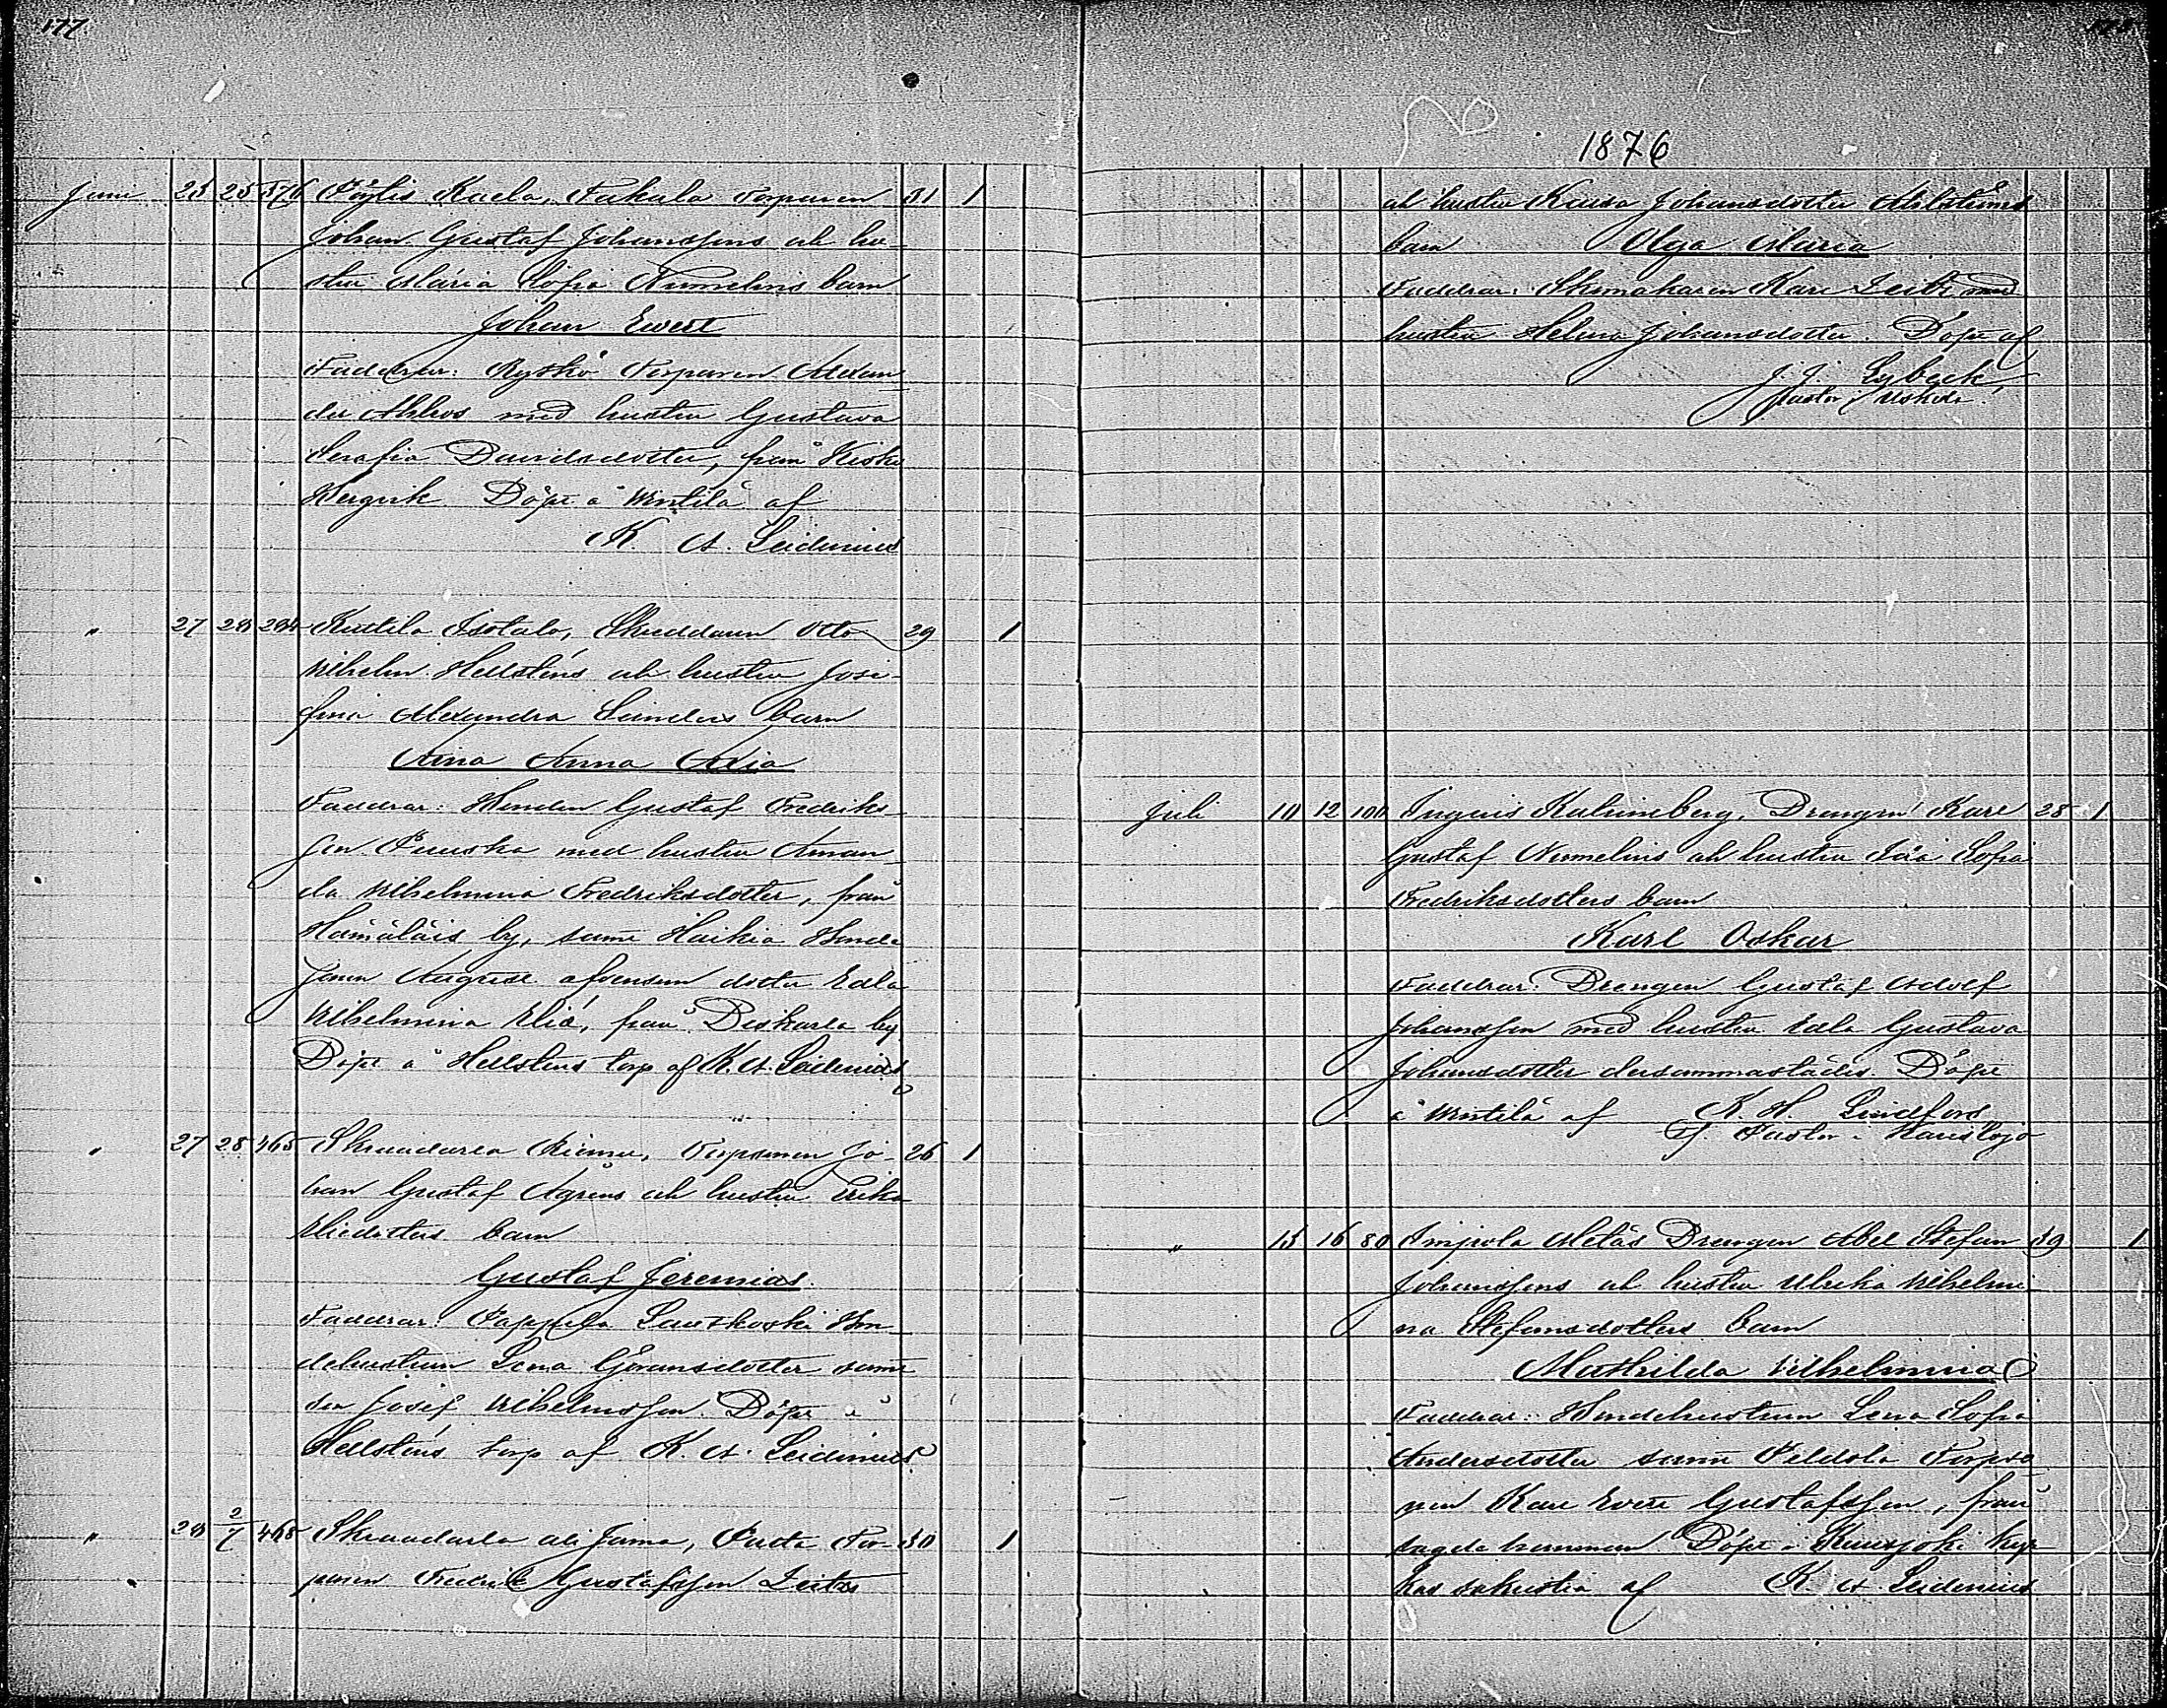 177
Juni 25 25 376 Pöytis Kaela, Takala Torparen 31 1
Johan Gustaf Johanssons och hu-
stru Maria Sofia Numelins barn
Johan Evert
Faddrar: Ryskö Torparen Alexan
der Ahlros med hustru Gustava
Serafia Davidsdotter, från Kisko
Haapniemi Döpt å Vintilä af
K. A. Leidenius
" 27 28 294 Kuttila Isotalo, Skräddaren Otto 29 1
Wilhelm Hellsténs och hustru Jose-
fina Alexandra Sanders barn
Aina Anna Alia
Faddrar: Bonden Gustaf Fredriks-
son Puuska med hustru Aman-
da Wilhelmina Fredriksdotter, från
Hämäläis by, samt Haikia Bonde
sonen August afvensom dotter Edla
Wilhelmina Elia, från Deskarla by
Döpt å Hellsténs torp af K. A. Leidenius
" 27 28 465 Skraadarla Riemu, Torparen Jo- 26 1
han Gustaf Ågrens och hustru Erika
Eliedotters barn
Gustaf Jeremias
Faddrar: Pappila Lauskoski Bon-
dehustrun Lena Göransdotter samt
dr. Josef Wilhelmsson. Döpt å
Hellsténs torp af K. A. Leidenius
" 28 2/7 468 Skraadarla ali Jama, Pusta Tor- 30 1
paren Fredrik Gustafsson Leitzs
1876
och hustru Kaisa Johansdotter Ahlströms
barn Olga Maria
Faddrar: Skomakaren Karl Leitz med
hustru Helena Johansdotter. Döpt af
J. J. Lybeck
Pastor i Uskela.
Juli 10 12 100 Ingeris Kulvineberg, Drengen Karl 28 1
Gustaf Numelins och hustru Ida Sofia
Fredriksdotters barn
Karl Oskar
Faddrar: Drengen Gustaf Adolf
Johansson med hustru Edla Gustava
Johansdotter dersammastädes. Döpt
å Vintilä af K. H. Lindfors
tf. Pastor i Karislojo
" 15 16 80 Impola Metäs Drengen Abel Stefan 39 1
Johanssons och hustru Ulrika Wilhelmi
na Stefansdotters barn
Mathilda Wilhelmina
Faddrar: Bondehustrun Lena Sofia
Andersdotter samt Peldola Torpa-
ren Karl Evert Gustafsson, från
sagde hemman Döpt i Kuusjoki kyr
kas sakristia af K. A. Leidenius